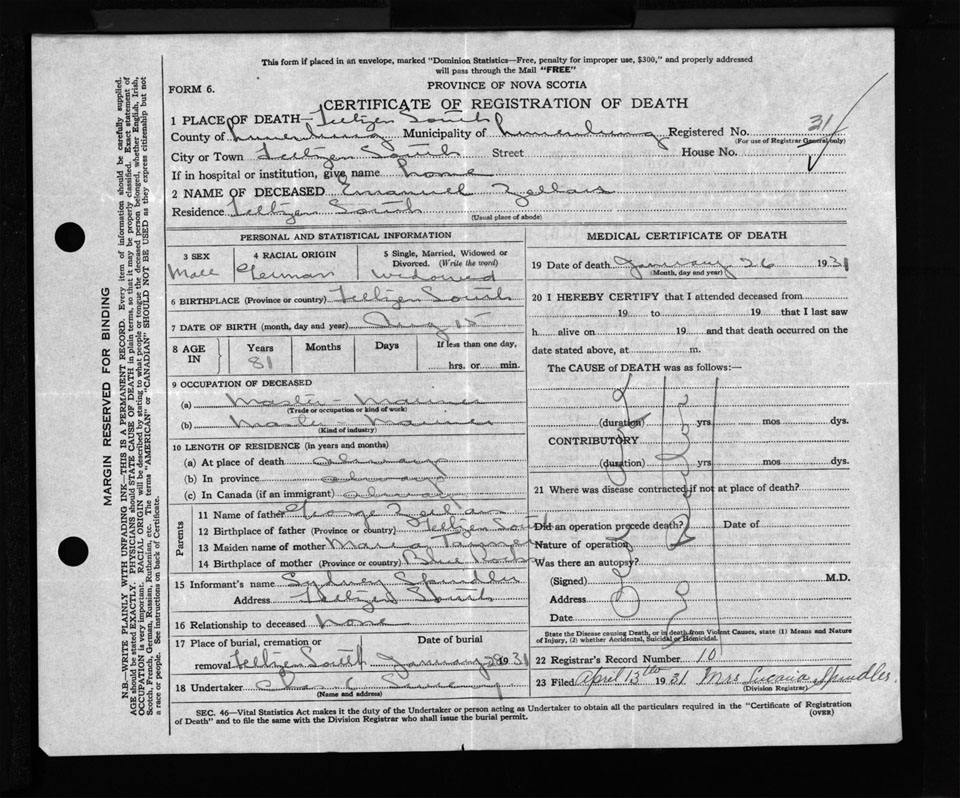 This form if placed in an envelope, marked "Dominion Statistics—Free, penalty for improper use, $300," and properly addressed
will pass through the Mail "FREE"
FORM 6.
PROVINCE OF NOVA SCOTIA
CERTIFICATE OF REGISTRATION OF DEATH
1 PLACE OF DEATH— Feltzen South
County of Lunenburg Municipality of Lunenburg Registered No. 31
(For use of Registrar General only)
City or Town Feltzen South Street House No.
If in hospital or institution, give name home
2 NAME OF DECEASED Emanuel Zellars
Residence Feltzen South
(Usual place of abode)
PERSONAL AND STATISTICAL INFORMATION
3 SEX
Male
4 RACIAL ORIGIN
German
5 Single, Married, Widowed or
Divorced. (Write the word)
Widowed
6 BIRTHPLACE (Province or country) Feltzen South
7 DATE OF BIRTH (month, day and year) Aug 15
8 AGE IN
Years
81
Months
Days
If less than one day,
hrs. or min.
9 OCCUPATION OF DECEASED
(a) Master Mariner
(Trade or occupation or kind of work)
(b) Master Mariner
(Kind of industry)
10 LENGTH OF RESIDENCE (in years and months)
(a) At place of death always
(b) In province always
(c) In Canada (if an immigrant) always
Parents
11 Name of father George Zellars
12 Birthplace of father (Province or country) Feltzen South
13 Maiden name of mother Tanner
14 Birthplace of mother (Province or country) Blue Rocks
15 Informant's name Sydney Spindler
Address Feltzen South
16 Relationship to deceased none
17 Place of burial, cremation or
removal Feltzen South
Date of burial
January 29 1931
18 Undertaker
(Name and address)
MEDICAL CERTIFICATE OF DEATH
19 Date of death January 26 1931
(Month, day and year)
20 I HEREBY CERTIFY that I attended deceased from
19 to 19 that I last saw
h alive on 19 and that death occurred on the
date stated above, at m.
The CAUSE of DEATH was as follows:—
(duration) yrs. mos dys.
CONTRIBUTORY
(duration) yrs mos dys.
21 Where was disease contracted if not at place of death?
Did an operation precede death? Date of
Nature of operation
Was there an autopsy?
(Signed) M.D.
Address
Date
State the Disease causing Death, or in death from Violent Causes, state (1) Means and Nature
of Injury, (2) whether Accidental, Suicidal or Homicidal.
22 Registrar's Record Number 10
23 Filed April 13th 1931 Mrs Spindler
(Division Registrar)
SEC. 46—Vital Statistics Act makes it the duty of the Undertaker or person acting as Undertaker to obtain all the particulars required in the "Certificate of Registration
of Death" and to file the same with the Division Registrar who shall issue the burial permit.
(OVER)
MARGIN RESERVED FOR BINDING
N.B.—WRITE PLAINLY WITH UNFADING INK—THIS IS A PERMANENT RECORD. Every item of information should be carefully supplied.
AGE should be stated EXACTLY. PHYSICIANS should STATE CAUSE OF DEATH in plain terms, so that it may be properly classified. Exact statement of
OCCUPATION is very important. RACIAL ORIGIN will be described by stating to what people or tongue the deceased person belonged, whether English, Irish,
Scotch, French, German, Russian, Ruthenian, etc. The terms "AMERICAN" or "CANADIAN" SHOULD NOT BE USED as they express citizenship but not
a race or people. See instructions on back of Certificate.